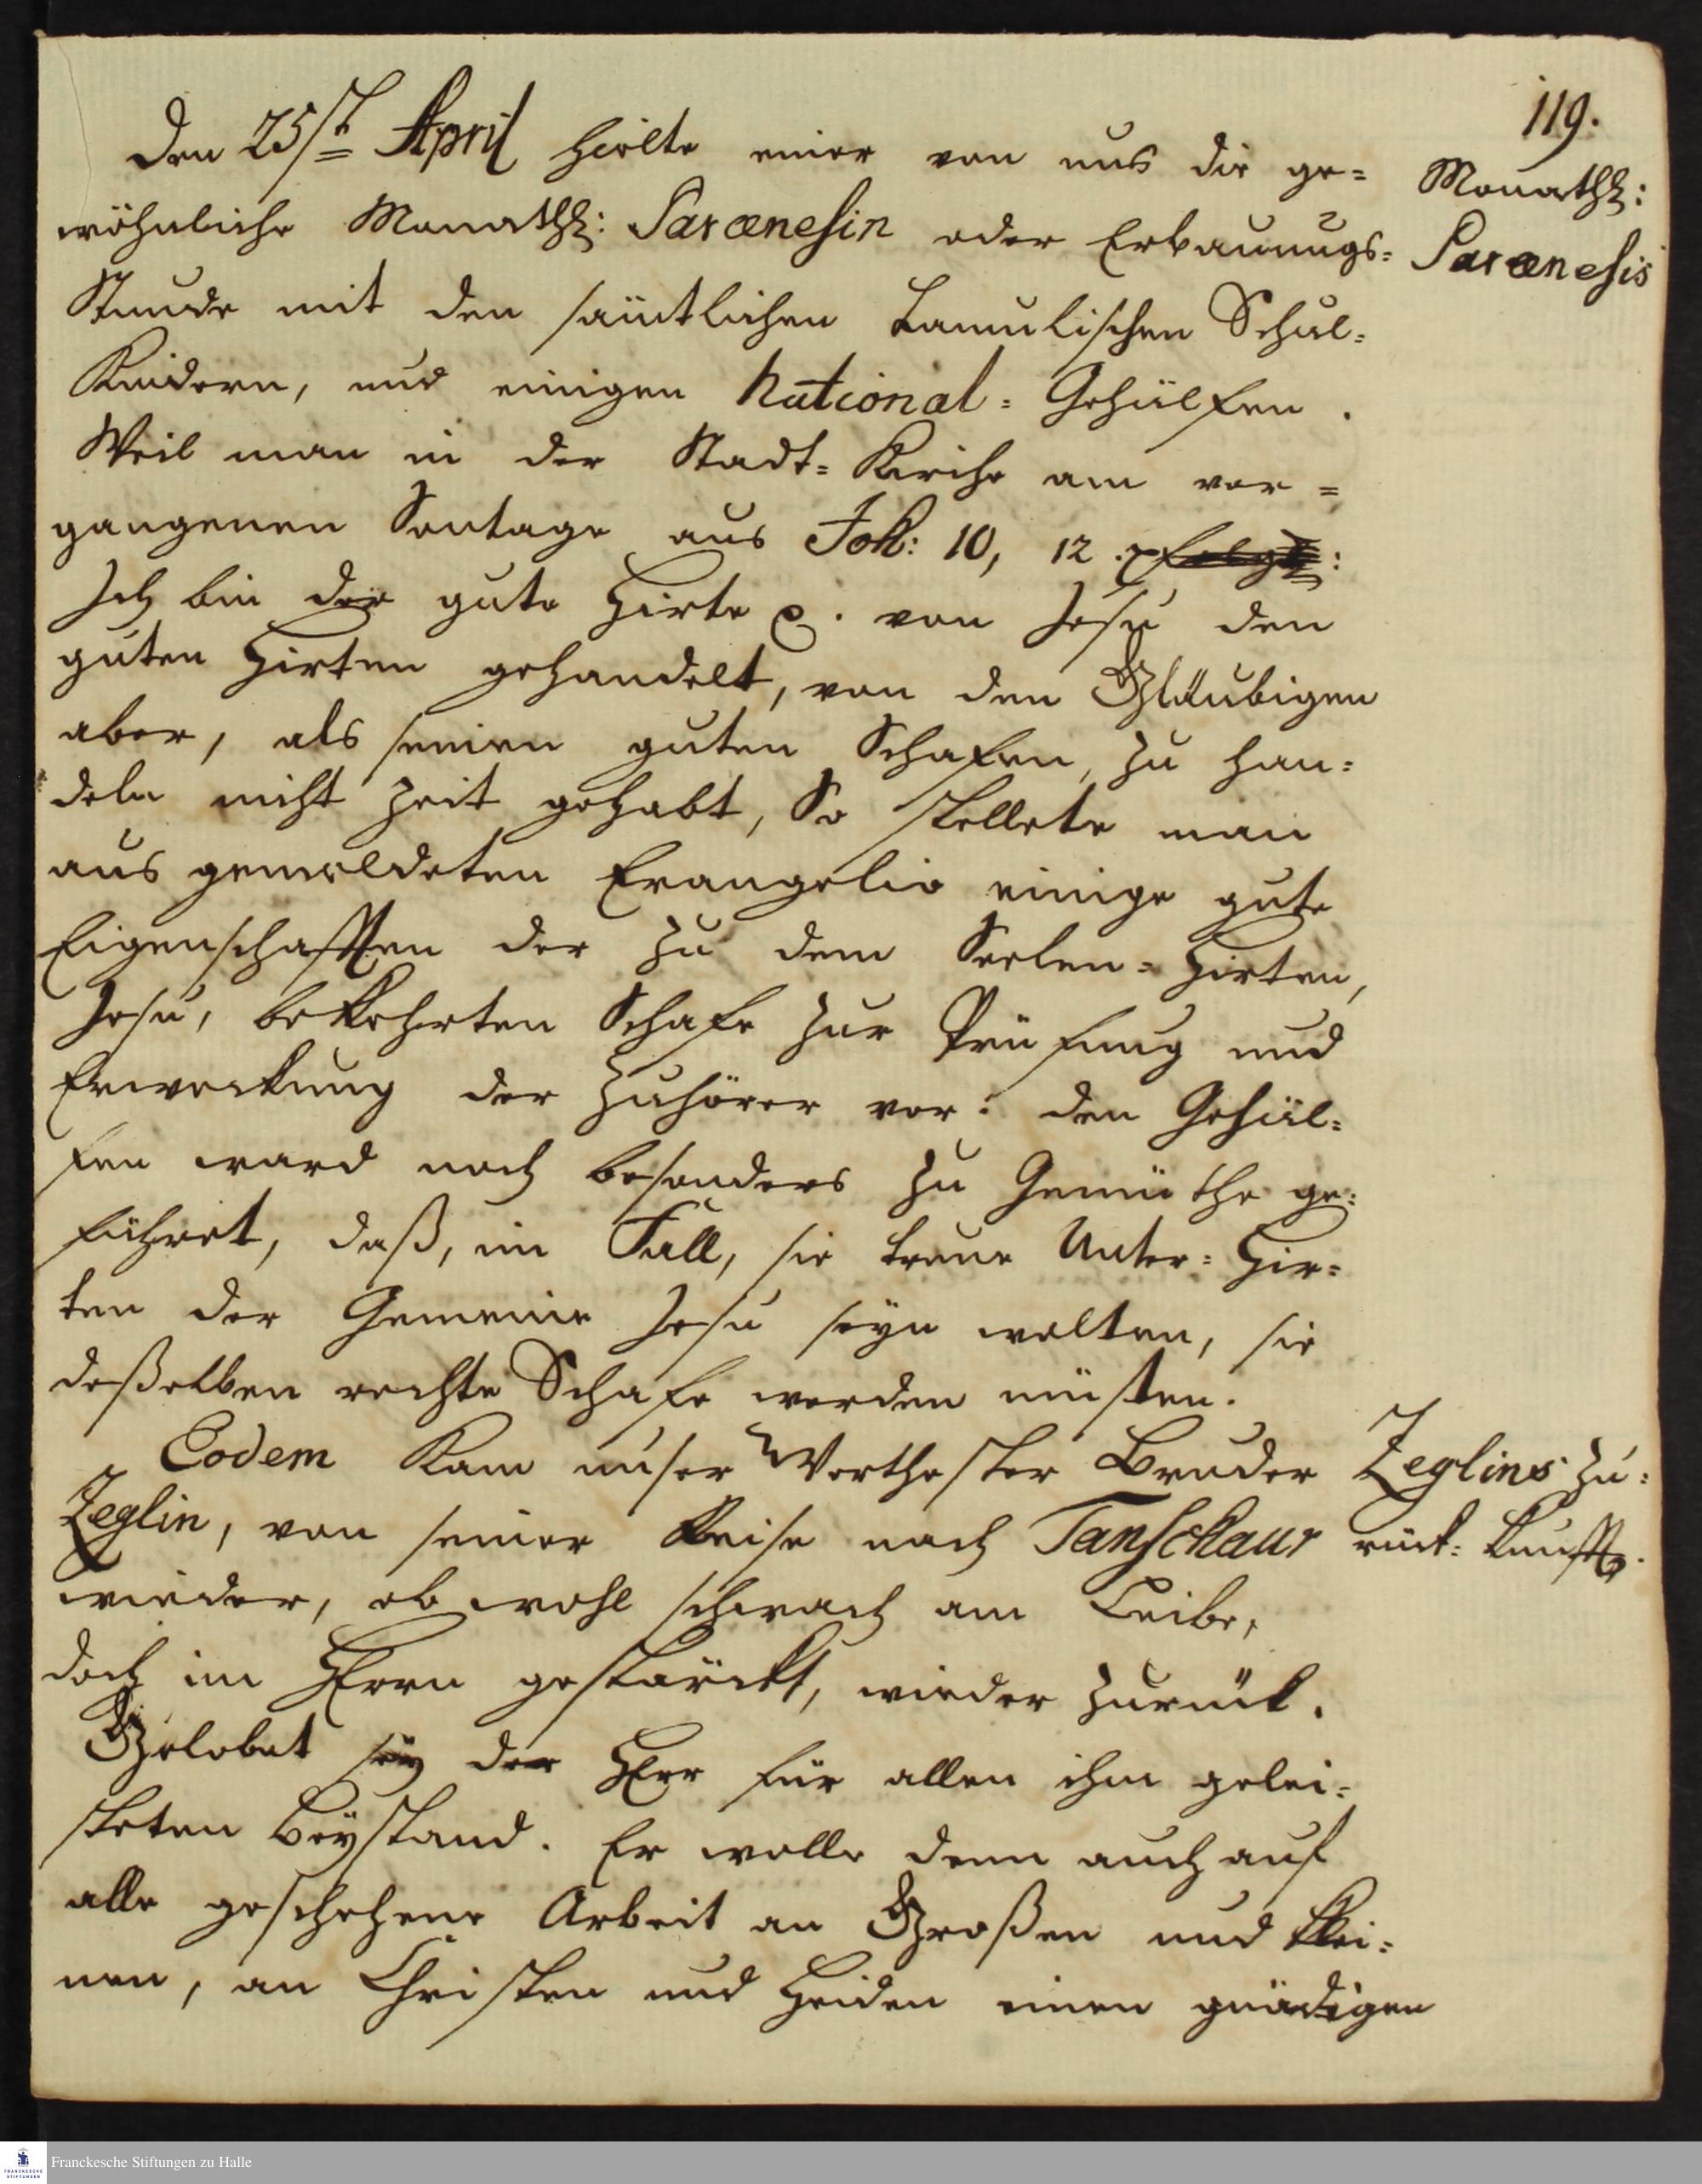 119.
Den 25st April hielte einer von uns die ge=
wöhnliche Monathl: Parænesin oder Erbauungs=
Stunde mit den sämtlichen Tamulischen Schul=
Kindern, und einigen National=Gehülfen.
Weil man in der Stadt=Kirche am ver=
gangenen Sontage aus Joh: 10, 12.
Ich bin der gute Hirte p. von Jesu den
guten Hirten gehandelt, von den Gläubigen
aber, als seinen guten Schafen, zu han=
deln nicht Zeit gehabt, So stellete man
aus gemeldeten Evangelio einige gute
Eigenschafften der zu dem Seelen=Hirten,
Jesu, bekehrten Schafe zur Prüfung und
Erweckung der Zuhörer vor: den Gehül=
fen ward noch besonders zu Gemüthe ge=
führet, daß, im Fall, sie treue Unter=Hir=
ten der Gemeine Jesu seyn wolten, sie
deßelben rechte Schafe werden müsten.
Eodem kam unser Werthester Bruder
Zeglin, von seiner Reise nach Tanschaur
wieder, ob wohl schwach am Leibe,
doch im HErrn gestärckt, wieder zurück.
Gelobet sey der HErr für allen ihm gelei=
steten Beystand. Er wolle denn auch auf
alle geschehene Arbeit an Großen und Klei=
nen, an Christen und Heiden einen gnädigen
Monathl:
Parænesis
Zeglins Zu=
rück=kunfft.
Franckesche Stiftungen zu Halle
FRANCKESCHE
STIFTUNGEN